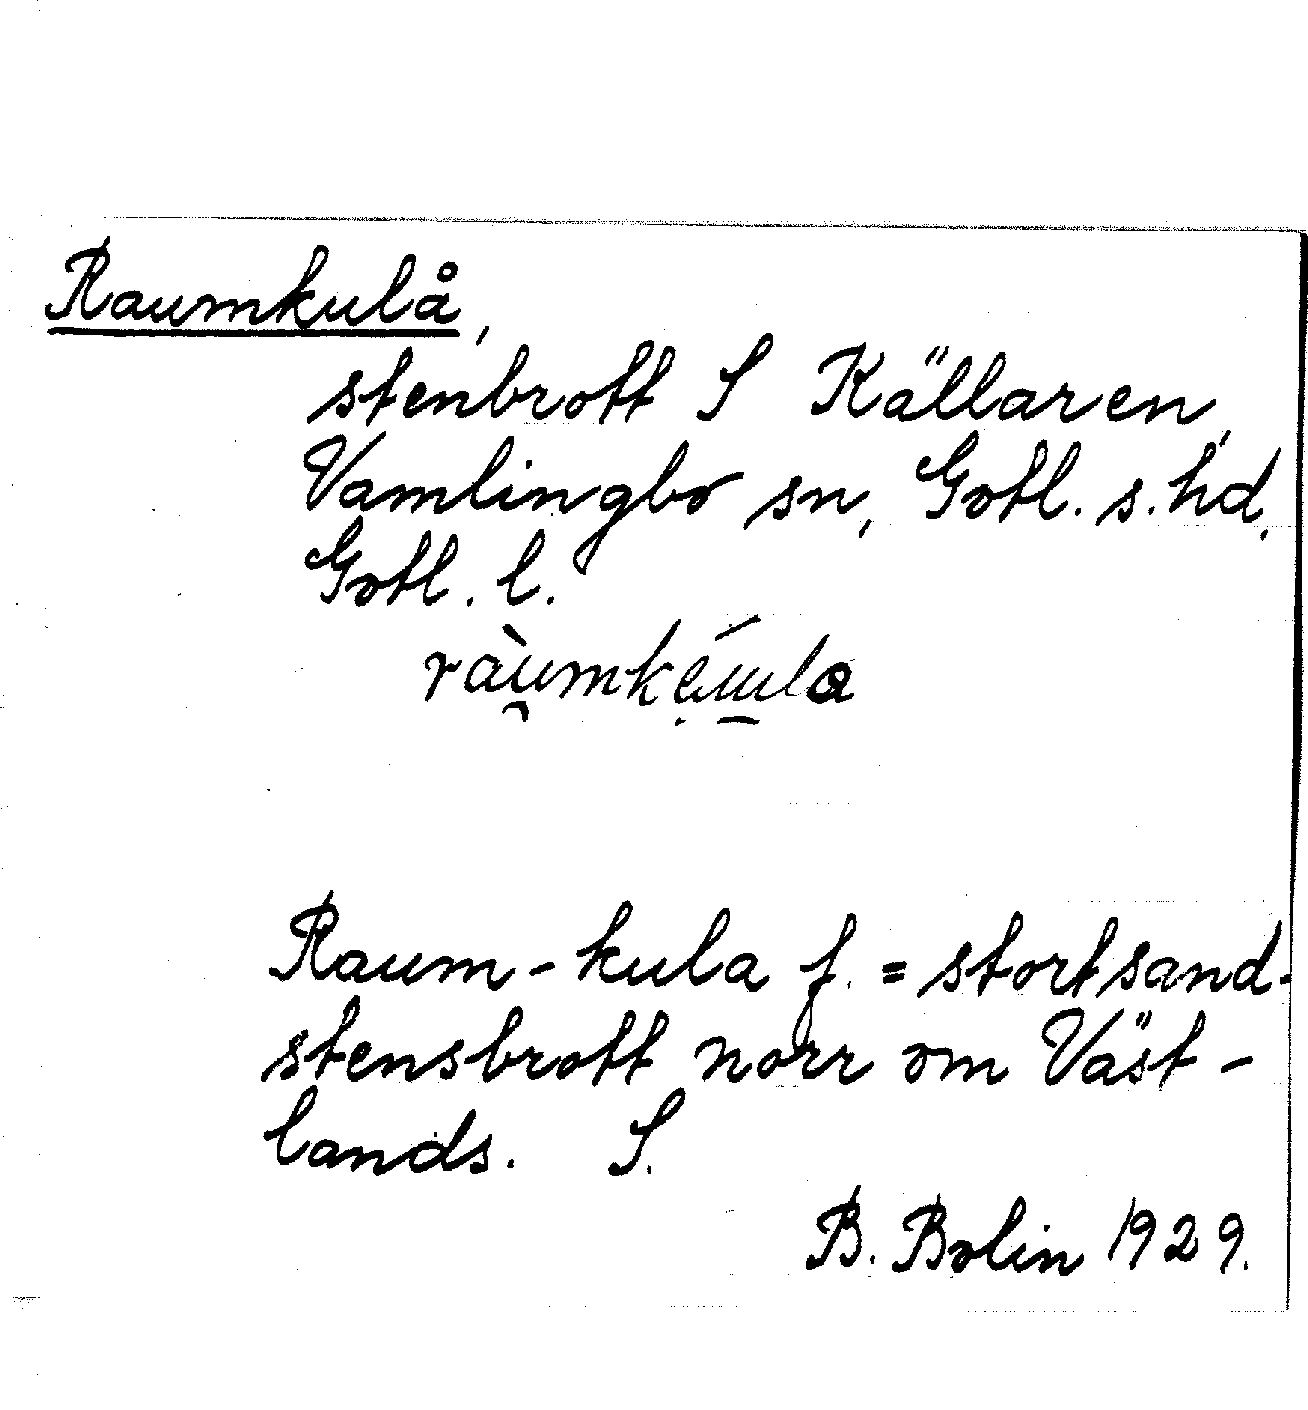 Raumkulå,
stenbrott S Källaren,
Vamlingbo sn, Gotl. s. hd,
Gotl. l.
Raum-kula f. = stort sand-
stensbrott norr om Väst-
lands. S.
B. Bolin 1929.